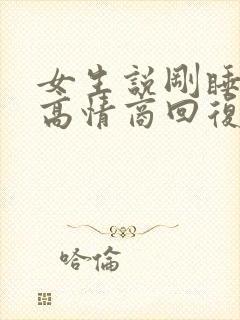 女生說剛睡
高情商回復
哈倫